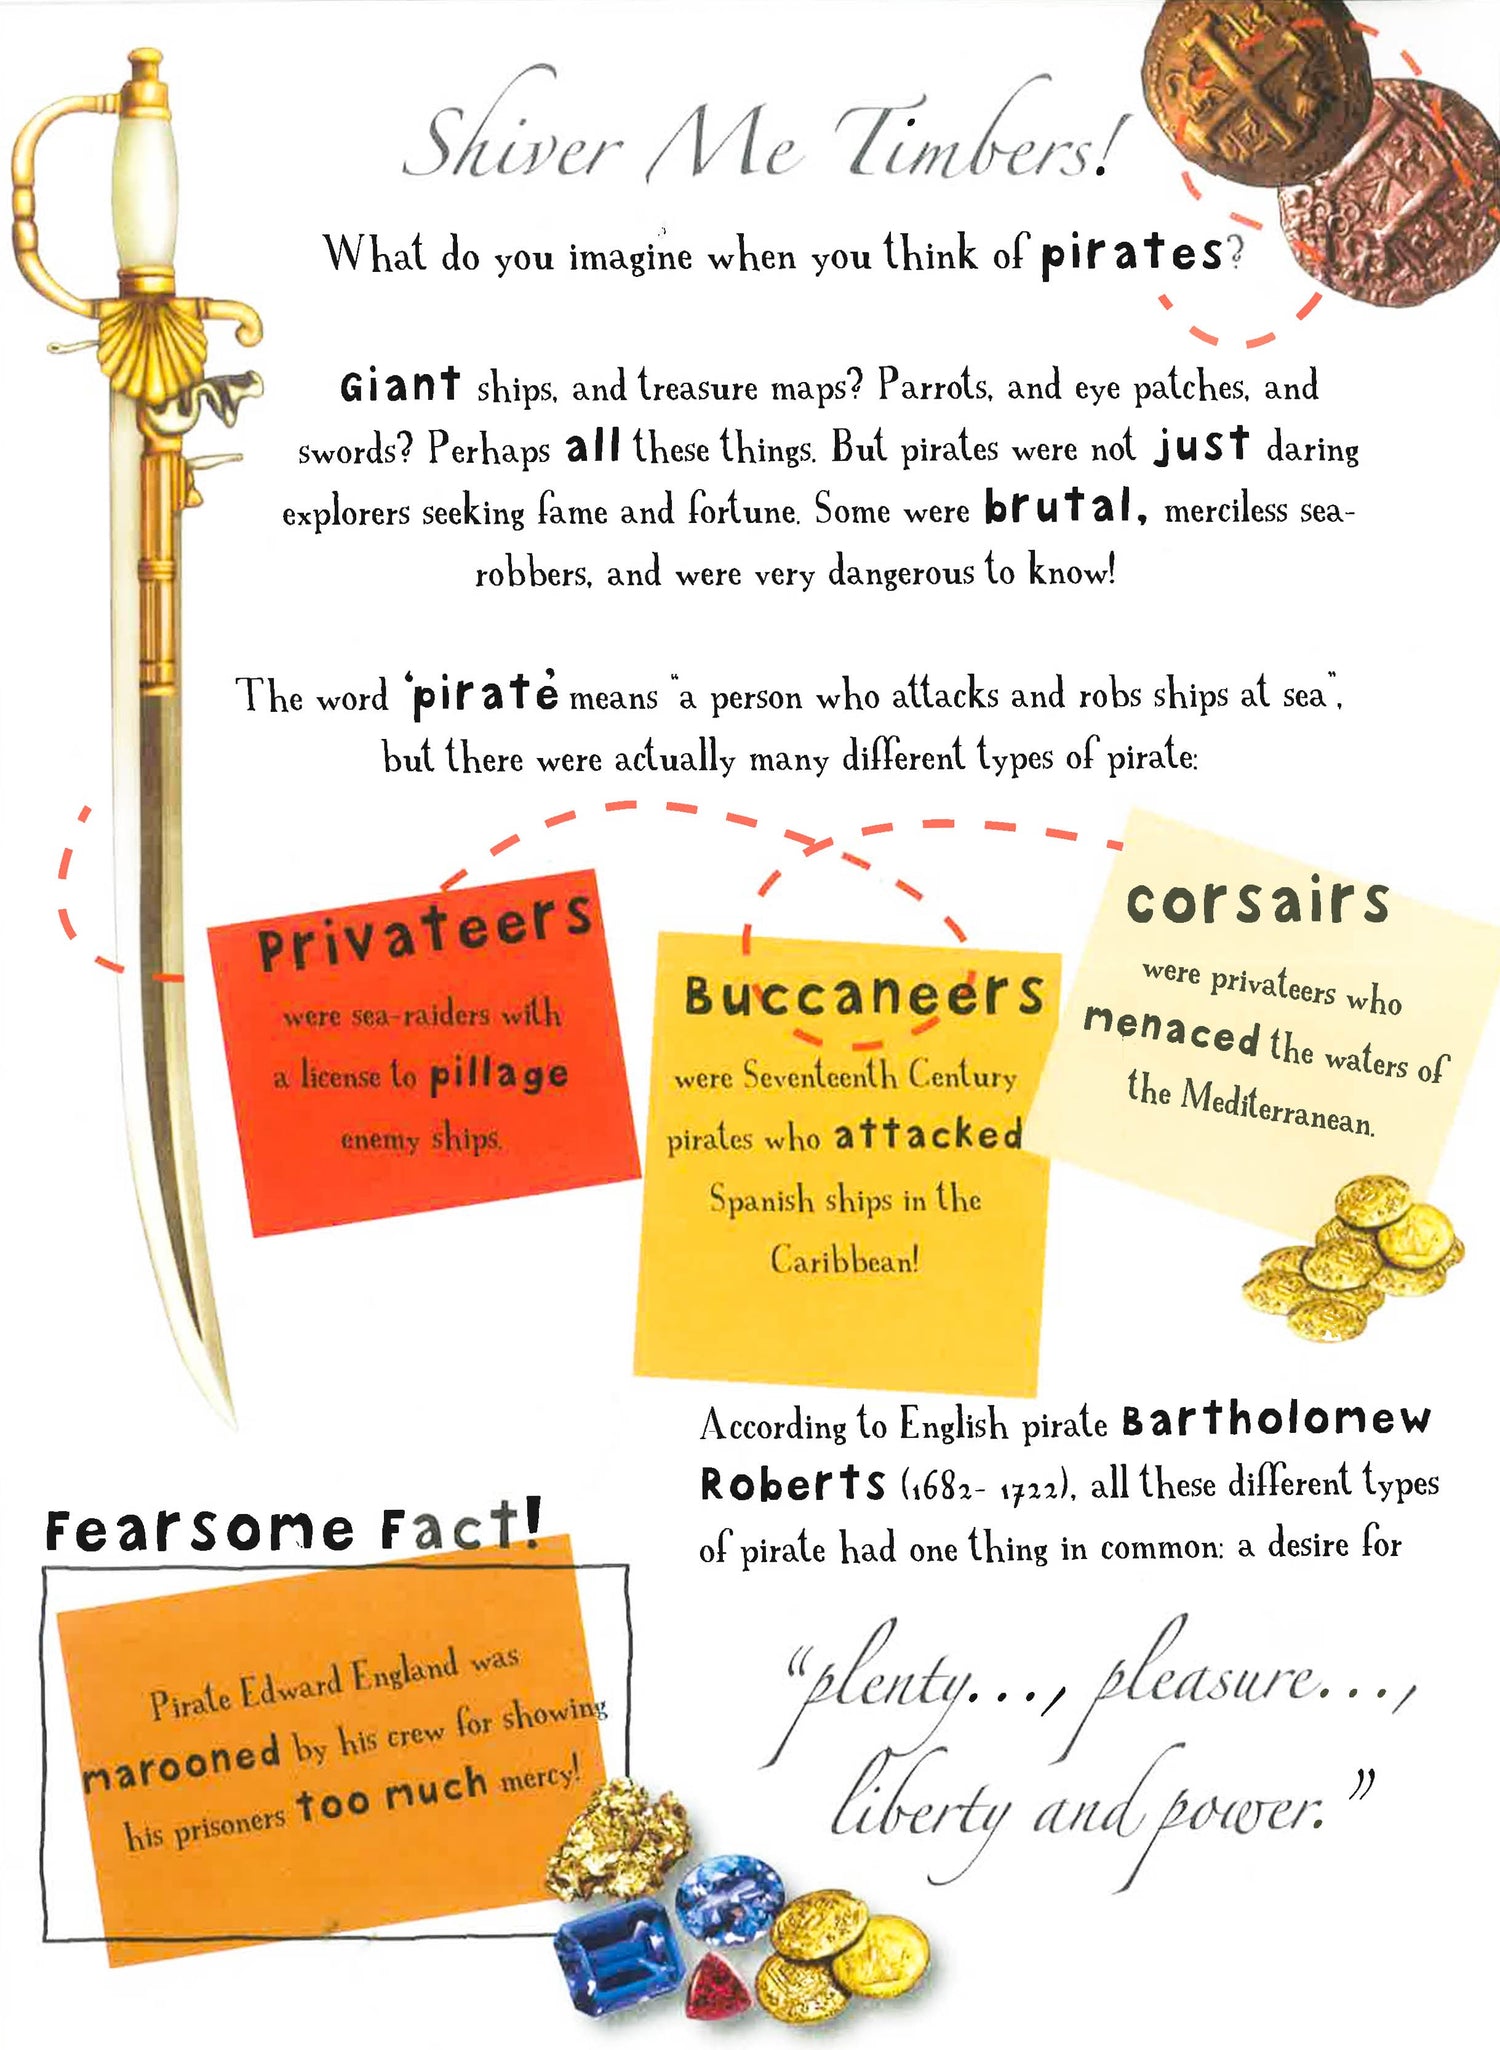 Shiver Me Timbers!
What do you imagine when you think of pirates?
Giant ships, and treasure maps? Parrots, and eye patches, and
swords? Perhaps all these things. But pirates were not just daring
explorers seeking fame and fortune. Some were brutal, merciless sea-
robbers, and were very dangerous to know!
The word 'pirate' means "a person who attacks and robs ships at sea",
but there were actually many different types of pirate:
Privateers
were sea-raiders with
a license to pillage
enemy ships.
Buccaneers
were Seventeenth Century
pirates who attacked
Spanish ships in the
Caribbean!
corsairs
were privateers who
menaced the waters of
the Mediterranean.
According to English pirate Bartholomew
Roberts (1682- 1722), all these different types
of pirate had one thing in common: a desire for
"plenty..., pleasure...,
liberty and power."
Fearsome Fact!
Pirate Edward England was
marooned by his crew for showing
his prisoners too much mercy!